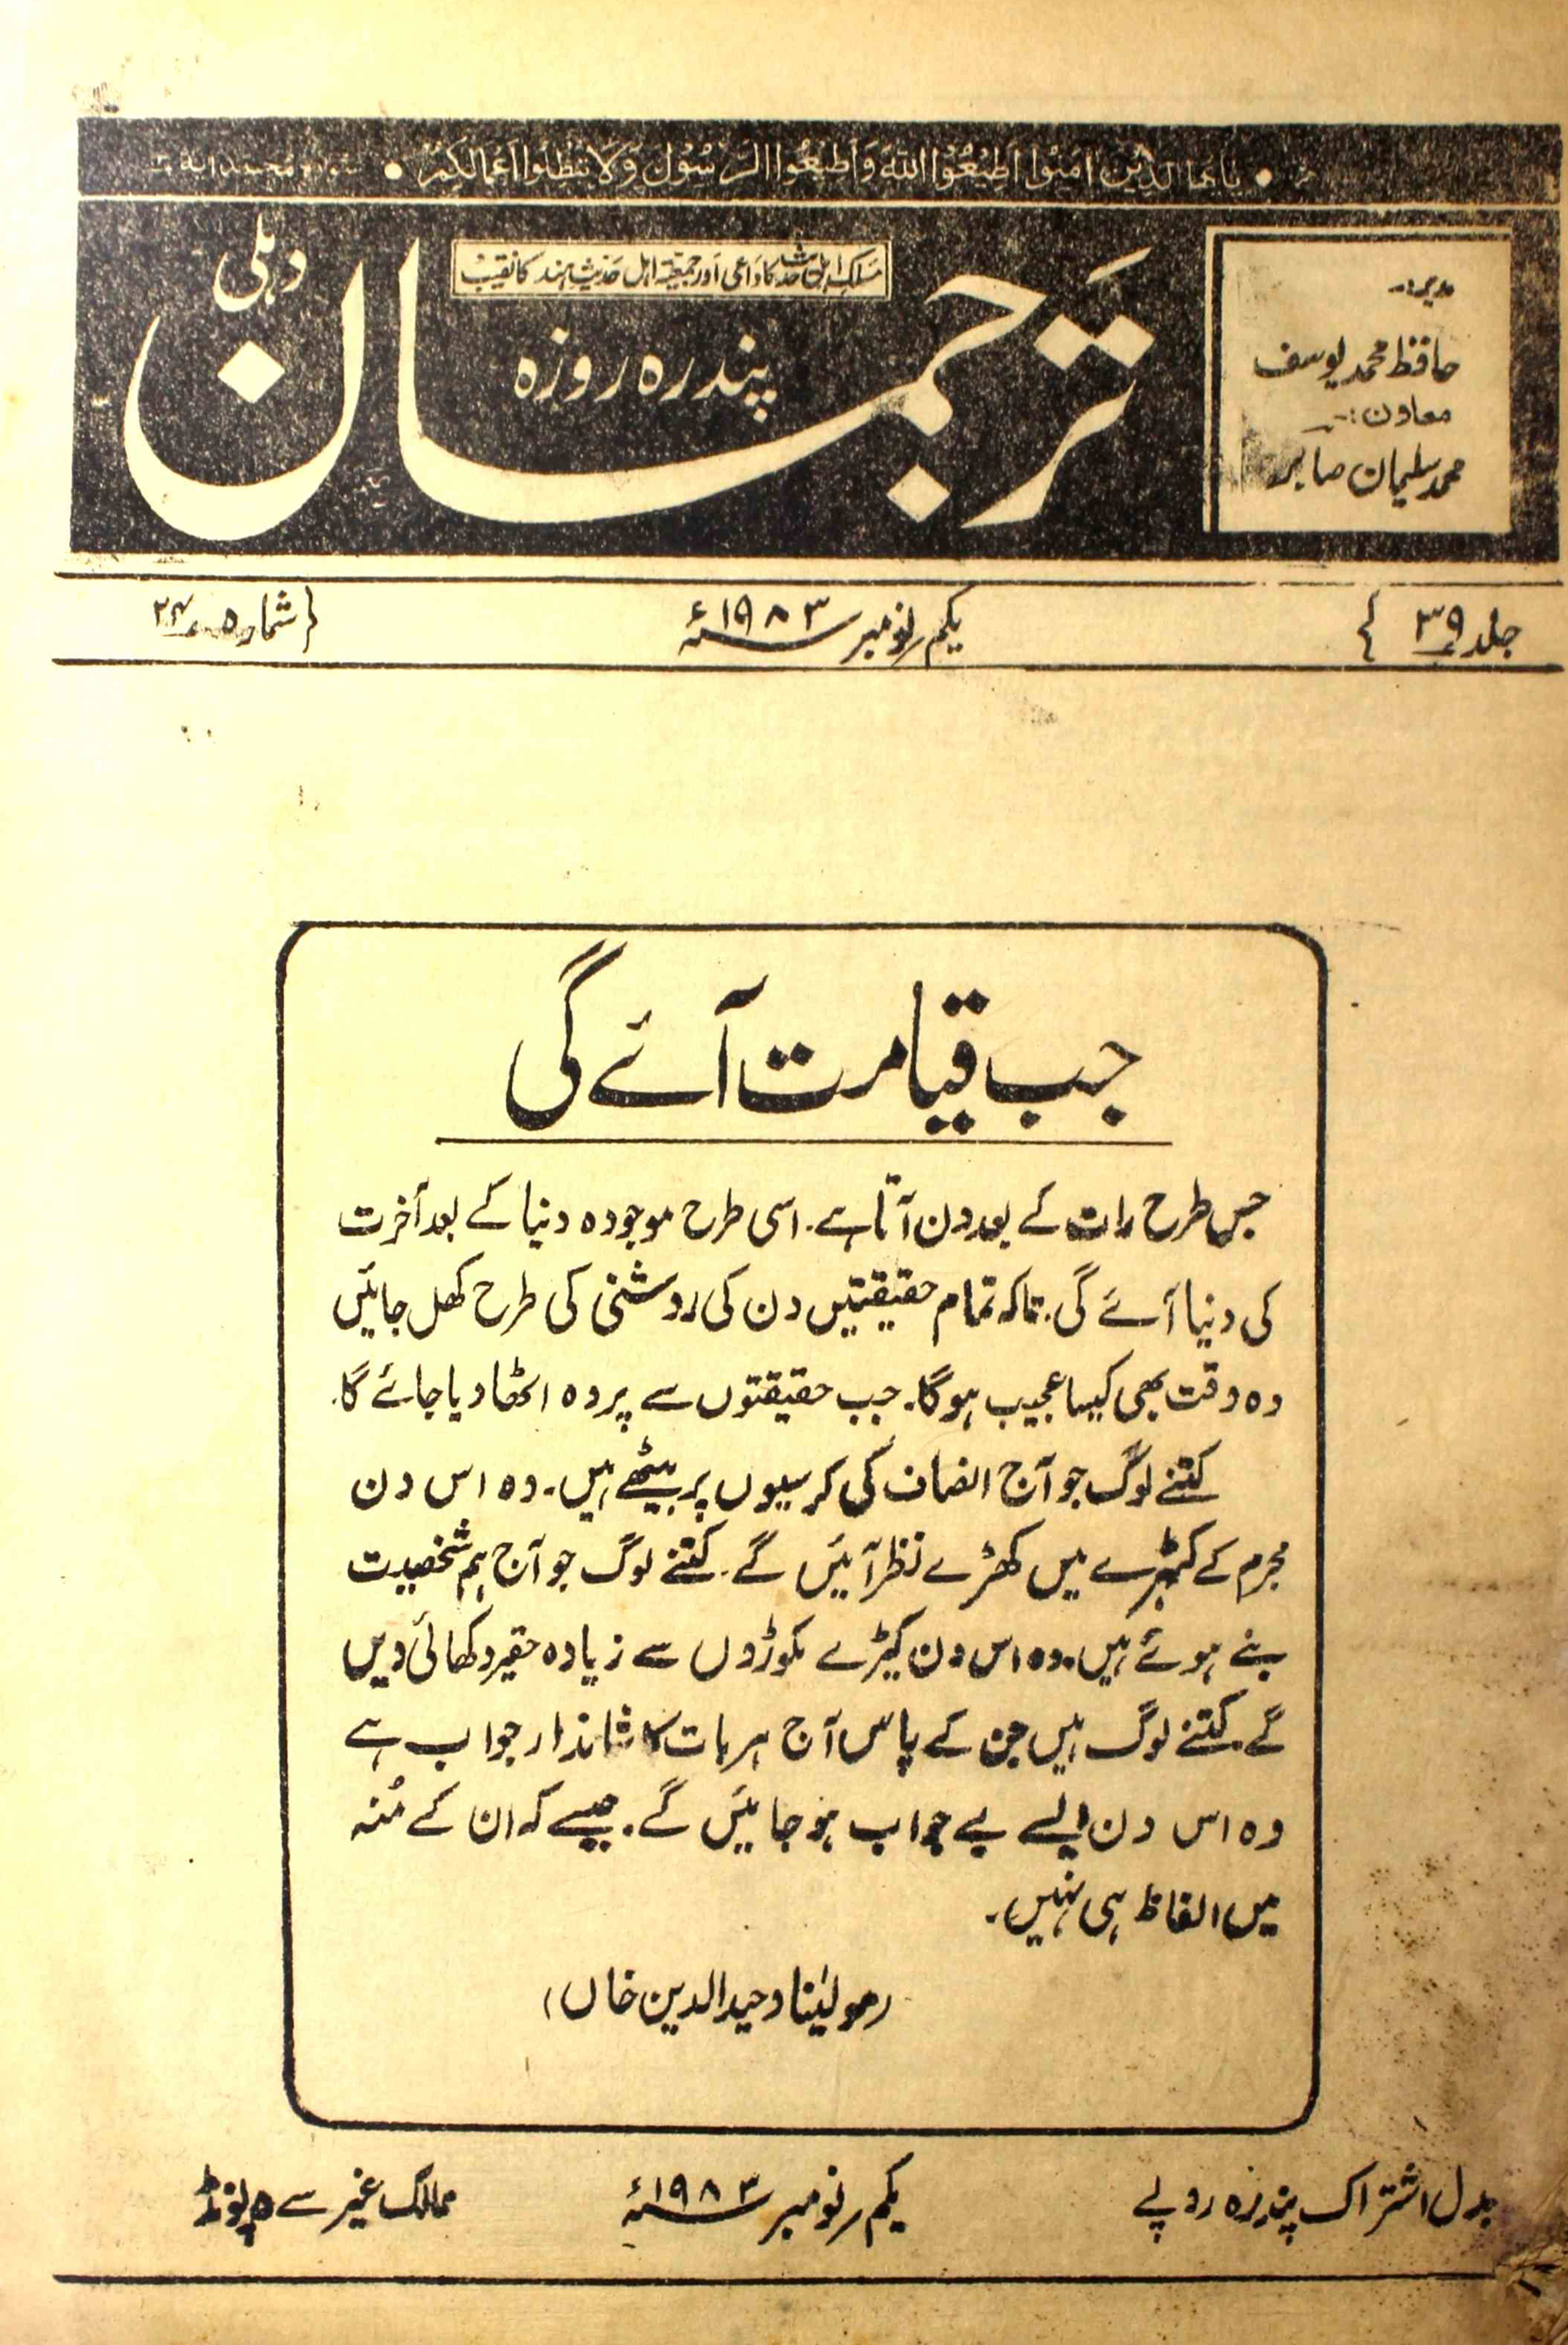 یاایھا الذین اٰمنوا اَطِیْعُوا اللّٰہَ وَاَطِیْعُوا الرَّسُوْلَ وَلَا تُبْطِلُوا اَعْمَالَکُمْ ●
مدیر:۔
حافظ محمد یوسف
معاون:۔
محمد سلیمان صابر
مسلک اہل حدیث کا داعی اور جمعیۃ اہل حدیث ہند کا نقیب
پندرہ روزہ
ترجمان
دہلی
جلد ۳۹
یکم نومبر ۱۹۸۳ء
شمارہ
جب قیامت آئے گی
جس طرح رات کے بعد دن آتا ہے۔ اسی طرح موجودہ دنیا کے بعد آخرت
کی دنیا آئے گی۔ تاکہ تمام حقیقتیں دن کی روشنی کی طرح کھل جائیں
وہ وقت بھی کیسا عجیب ہوگا۔ جب حقیقتوں سے پردہ اٹھا دیا جائے گا۔
کتنے لوگ جو آج انصاف کی کرسیوں پر بیٹھے ہیں۔ وہ اس دن
مجرم کے کٹہرے میں کھڑے نظر آئیں گے۔ کتنے لوگ جو آج اہم شخصیت
بنے ہوئے ہیں۔ وہ اس دن کیڑے مکوڑوں سے زیادہ حقیر دکھائی دیں
گے۔ کتنے لوگ ہیں جن کے پاس آج ہر بات کا شاندار جواب ہے
وہ اس دن ایسے بے جواب ہو جائیں گے۔ جیسے کہ ان کے مُنہ
میں الفاظ ہی نہیں۔
(مولیٰنا وحید الدین خاں)
بدل اشتراک پندرہ روپے
یکم نومبر ۱۹۸۳ء
ممالک غیر سے ۵ پونڈ